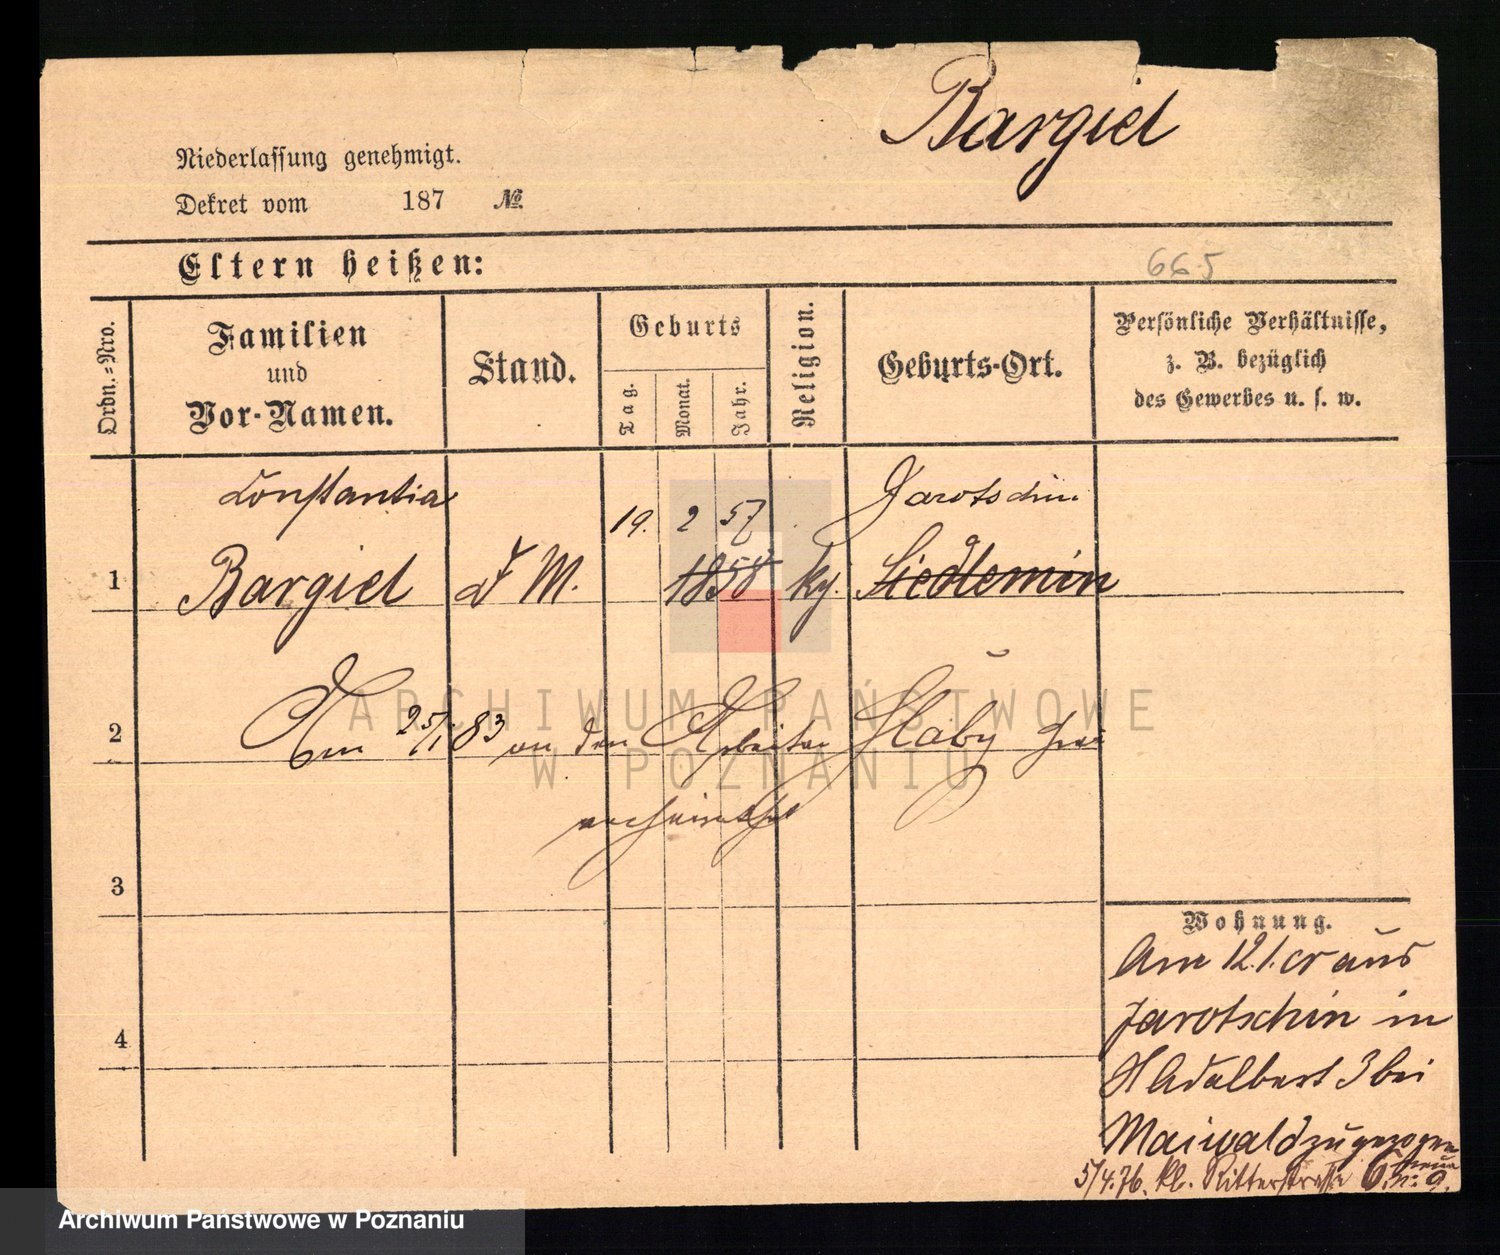 Bargiel
Niederlassung genehmigt.
Dekret vom 187 №.
Eltern heißen:
665
Ordn.=Nro.
Familien
und
Vor-Namen.
Stand.
Geburts
Tag.
Monat.
Jahr.
Religion.
Geburts-Ort.
Persönliche Verhältnisse,
z. B. bezüglich
des Gewerbes u. s. w.
Constantia
19. 2 57
Jarotschin
1 Bargiel d M. 1858 kg. Siedlemin
ARCHIWUM PAŃSTWOWE
W POZNANIU
2 Am 25/1 83 an den Arbeiter Slaby
verheirathet
3
Wohnung.
Am 12.1. cr aus
Jarotschin in
St Adalbert 3 bei
Maiwald zugezogen
4
5/4.76. kl. Ritterstraße 6. neue
nr. 9.
Archiwum Państwowe w Poznaniu